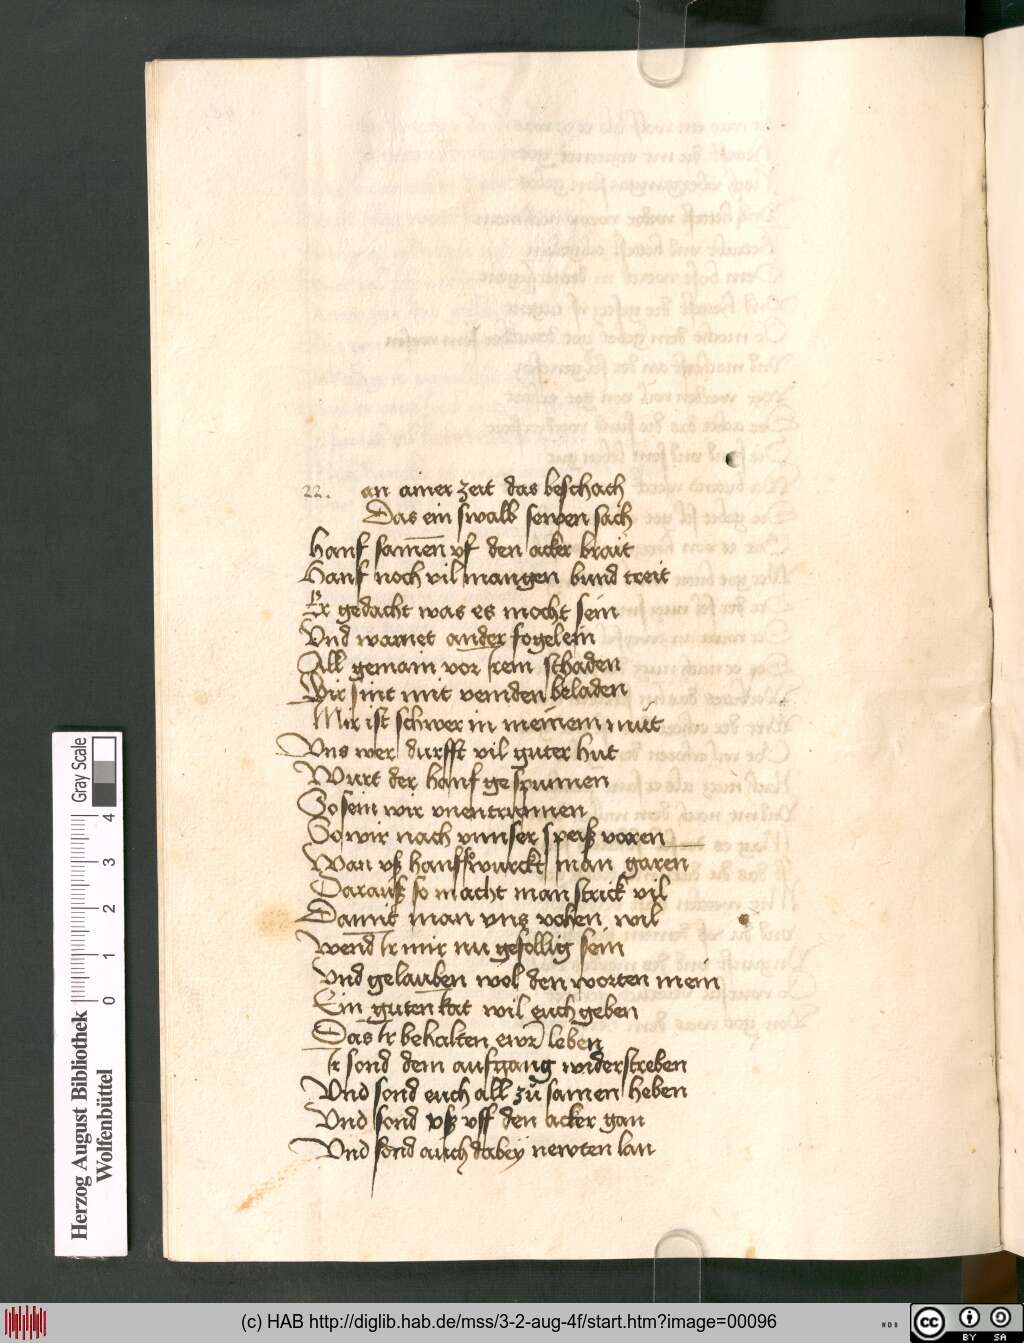 22. an ainer zeit das beschach
Das ein swalb sewen sach
Hanf samen vf den acker brait
Hanf noch vil mangen bund treit
Er gedacht was es mocht sein
Vnd warnet ander fogelein
All gemain vor irem schaden
Wir sint mit veinden beladen
Mir ist schwer in meinem mut
Vns wer durfft vil guter hut
Wurt der hanf gespunnen
So sein wir vnentrunnen
So wir nach vnnser speiß varen
Wan vß hanff wurckt man garen
Darauß so macht man strick vil
Damit man vns vahen wil
Wend ir mir nu gefollig sein
Vnd gelauben wol den worten mein
Ein guten rat wil euch geben
Das ir behalten ewr leben
Ir sond dem aufgang widerstreben
Vnd sond euch all zu samen heben
Vnd sond vß vff den acker gan
Vnd sond auch dabey newten lan
Gray Scale
0 1 2 3 4
Herzog August Bibliothek
Wolfenbüttel
(c) HAB http://diglib.hab.de/mss/3-2-aug-4f/start.htm?image=00096
WDB
cc BY SA